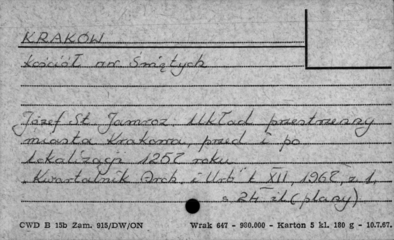 KRAKÓW
kościół WW Świętych
Józef St. Jamroz. Układ przestrzenny
miasta Krakowa, przed i po
lokalizacji 1257 roku
"Kwartalnik Arch. i Urb" t. XII 1967, z. 1,
s. 24 il. (plany)
CWD B 15b Zam. 915/DW/ON Wrak 647 - 980.000 - Karton 5 kl. 180 g - 10.7.67.